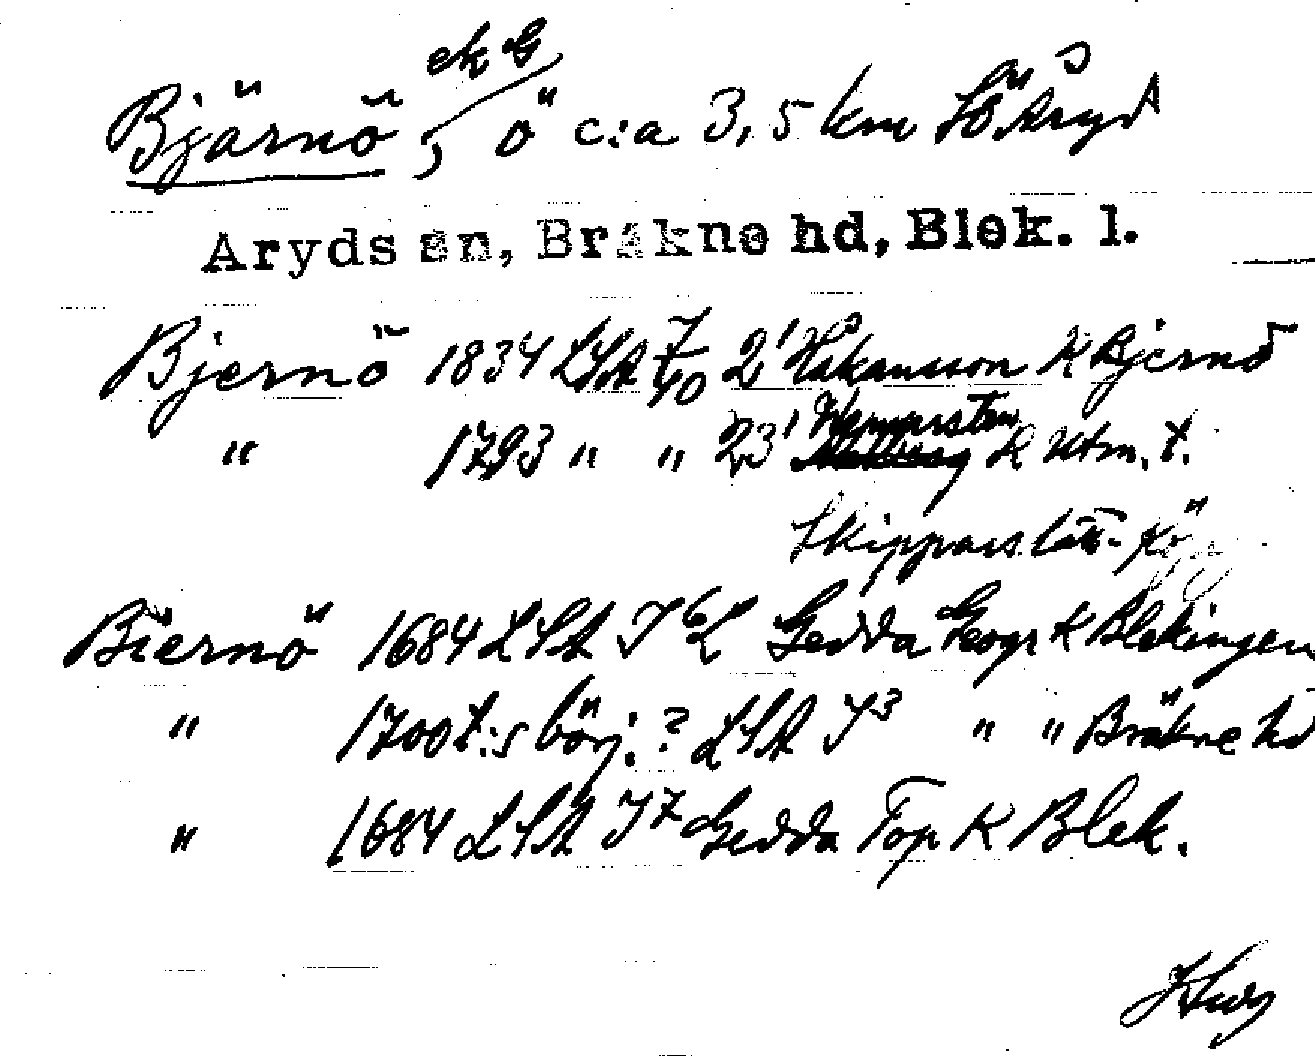 ek G
Bjärnö, ö c:a 3,5 km SÖ Aryd
Aryds sn, Bräkne hd, Blek. l.
Bjernö 1834 LSA 2' Håkansson K Bjernö
" 1793 " " 23' K Utm. t.
Skipparslätt-
Biernö 1684 LSA Gedda Geogr K Blekingen
" 1700t:s börj.? LSA Y3 " " Bräkne hd
" 1684 LSA Y7 Gedda Top K Blek.